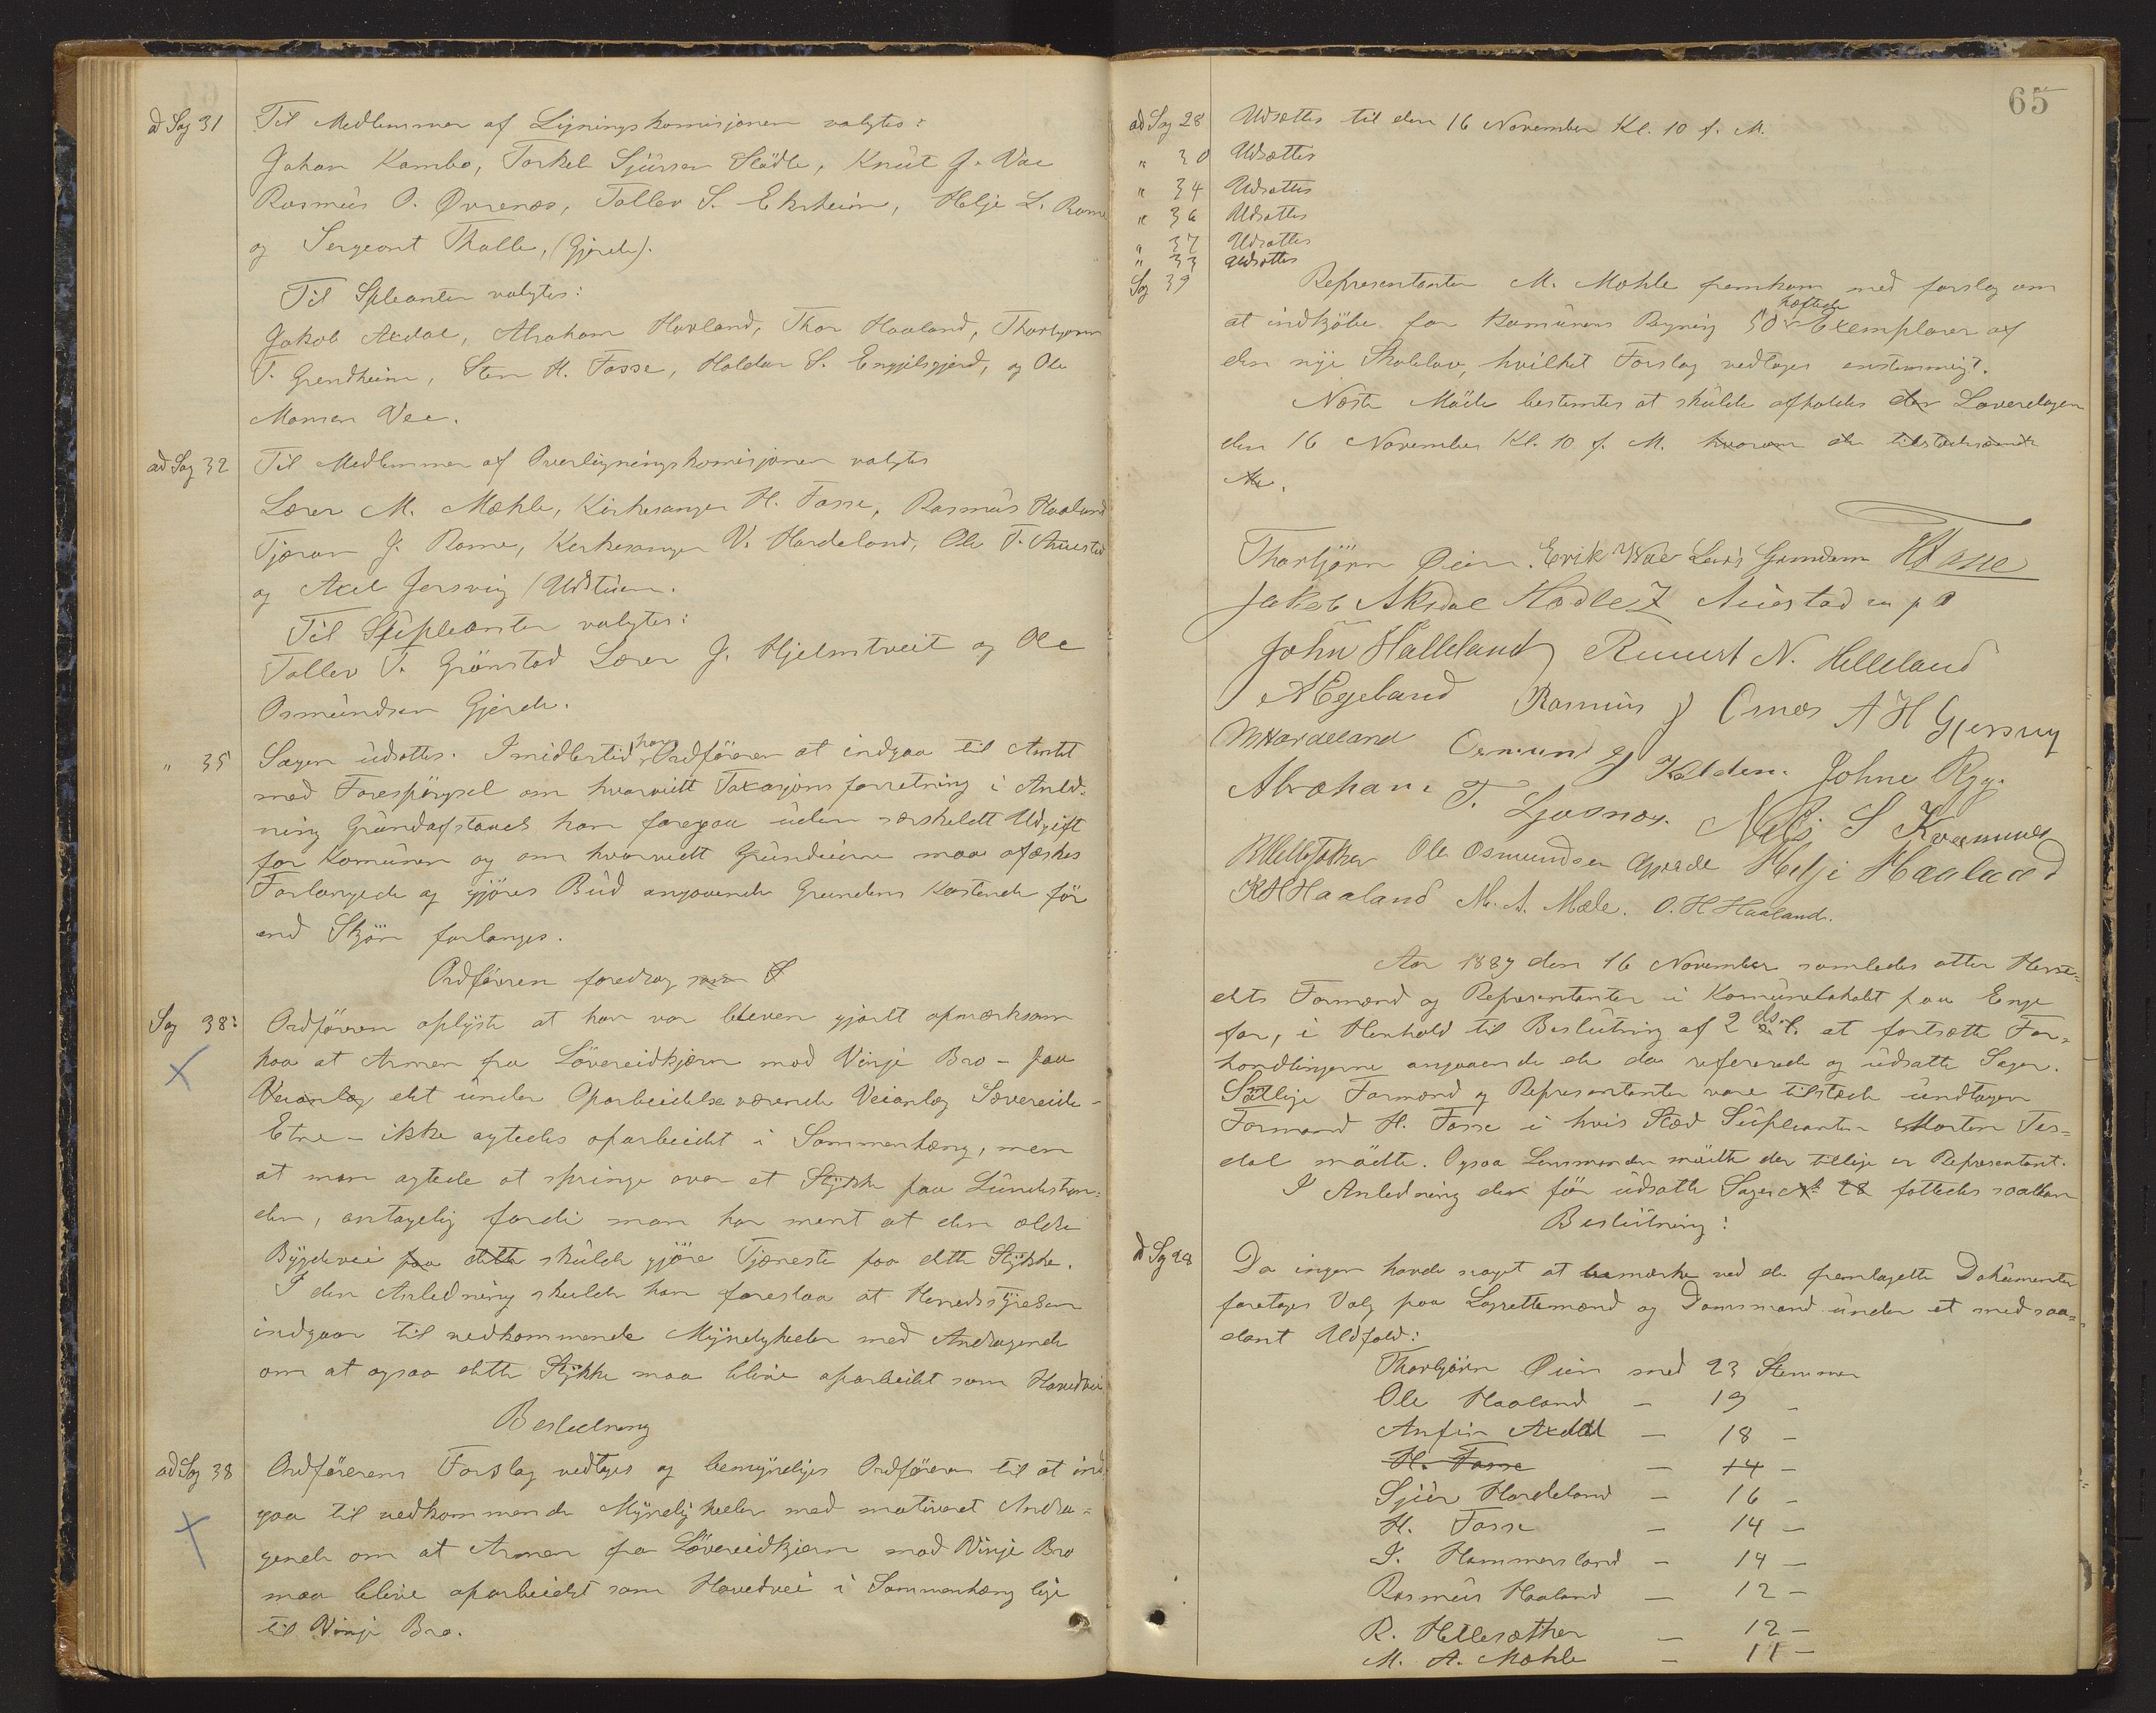 ad Sag 31 Til Medlemmer af Ligningskomisjonen valgtes:
Johan Kambo, Torkel Sjursen Städle, Knut J. Vae
Rasmus O. Øvrenæs, Tollev S. Ekrheim, Helje L. Rame
og Sergeant Thalle, (Gjerde).
Til Spleanter valgtes:
Jakob Axdal, Abraham Havland, Thor Haaland, Thorbjørn
T. Grendheim, Sten H. Fosse, Haldor S. Engjelsgjerd, og Ole
Monsen Vee.
ad Sag 32 Til Medlemmer af Overligningskomisjonen valgtes
Lærer M. Mæhle, Kirkesanger H. Fosse, Rasmus Haaland
Tjeran J. Rame, Kirkesanger V. Hardeland, Ole T. Austad
og Axel Jersvig /Udstuen.
Til Supleanter valgtes:
Tollev T. Grönstad Lærer J. Hjelmtveit og Ole
Osmundsen Gjerde.
" 35 Sagen udsattes. Imidlertid har Ordföreren at indgaa til Amtet
med Forespörgsel om hvorvidt Taxasjonsforretning i Anled-
ning Grundafstaaels kan foregaa uden særskeldt Udgift
for Komunen og om hvorvidt Grundeierne maa afæskes
Forlangede og gjöres Bud angaaende Grundens Kostende för
end Skjön forlanges.
Ordföreren foredrog som S
Sag 38: Ordföreren oplyste at han var bleven gjort opmærksom
paa at Armen fra Lövereidkjærn mod Vinje Bro - paa
Veianlæg det under Oparbeidelse værende Veianlæg Sævereide-
Etne - ikke agtedes oparbeidet i Sammenhæng, men
at man agtede at springe over et Stykke paa Lundestran-
den, antagelig fordi man har ment at den ældre
Bygdevei paa dette skulde gjöre Tjeneste paa dette Stykke.
I den Anledning skulde han foreslaa at Herredsstyrelsen
indgaar til vedkommende Myndigheder med Andragende
om at ogsaa dette Stykke maa blive oparbeidet som Hovedvei
Beslutning
ad Sag 38 Ordförerens Forslag vedtages og bemyndiges Ordföreren til at ind-
gaa til vedkommende Myndigheder med motiveret Andra-
gende om at Armen fra Lövereidkjærn mod Vinje Bro
maa blive oparbeidet som Hovedvei i Sammenhæng lige
til Vinje Bro.
65
ad Sag 28 Udsættes til den 16 November Kl. 10 f. M.
" 30 Udsættes
" 34 Udsættes
" 36 Udsattes
" 37 Udsattes
" 33 Udsattes
Sag 39 Representanten M. Mæhle fremkom med forslag om
at indkjöbe for Komunens Regning 50 hæftede Exemplarer af
den nye Skolelov, hvilket Forslag vedtages enstemmigt.
Næste Möde bestemtes at skulde afholdes den Laverdagen
den 16 November Kl. 10 f. M. hvorom de tilstedeværende
Thorbjörn Øien. Erik Vae Lars Grindem H Fosse
Jakob Aksdal Hodle T Austad m p P
John Hälleland Knut N. Helleland
A Egeland Rasmus J Ornes A H Gjersvig
M Hardeland Osmund G Kalden. John Rygg
Abraham T. Ljosnæs. Nels S Kvamme
R Hellesæther Ole Osmundsen Gjerde Helje Haaland
K H Haaland M. A. Mæle. O. H Haaland.
Aar 1889 den 16 November samledes atter Herre-
dets Formænd og Representanter i Komunelokalet paa Enge
for, i Henhold til Beslutning af 2 ds. at fortsætte For-
handlingerne angaaende de da refererede og udsatte Sager.
Samtlige Formænd og Representanter vare tilstede undtagen
Formand H. Fosse i hvis Sted Supleanten Morten Tes-
dal mödte. Ogsaa Lensmanden mödte der tillige er Representant.
I Anledning de för udsatte Sager No 28 fattedes saadan
Beslutning:
ad Sag 28 Da ingen havde noget at bemærke ved de fremlagte Dokumenter
foretages Valg paa Lagrettemænd og Domsmænd under et med saa-
dant Udfald:
Thorbjörn Øien med 23 Stemmer
Ole Haaland - 19 -
Anfin Axdal - 18 -
H. Fosse - 14 -
Sjur Hardeland - 16 -
H. Fosse - 14 -
I. Hammersland - 14 -
Rasmus Haaland - 12 -
R. Hellesæther - 12 -
M. A. Mæhle - 11 -